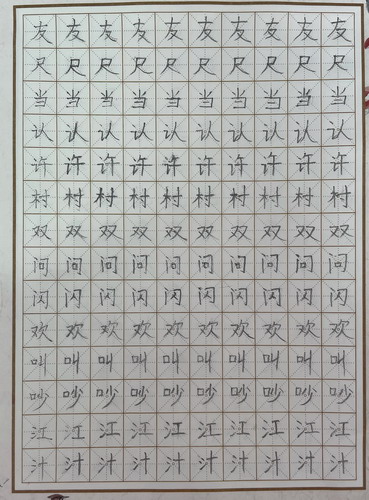 友友友友友友友友友友
尺尺尺尺尺尺尺尺尺尺
当当当当当当当当当当
认认认认认认认认认认
许许许许许许许许许许
村村村村村村村村村村
双双双双双双双双双双
问问问问问问问问问问
闪闪闪闪闪闪闪闪闪闪
欢欢欢欢欢欢欢欢欢欢
叫叫叫叫叫叫叫叫叫叫
吵吵吵吵吵吵吵吵吵吵
江江江江江江江江江江
汁汁汁汁汁汁汁汁汁汁